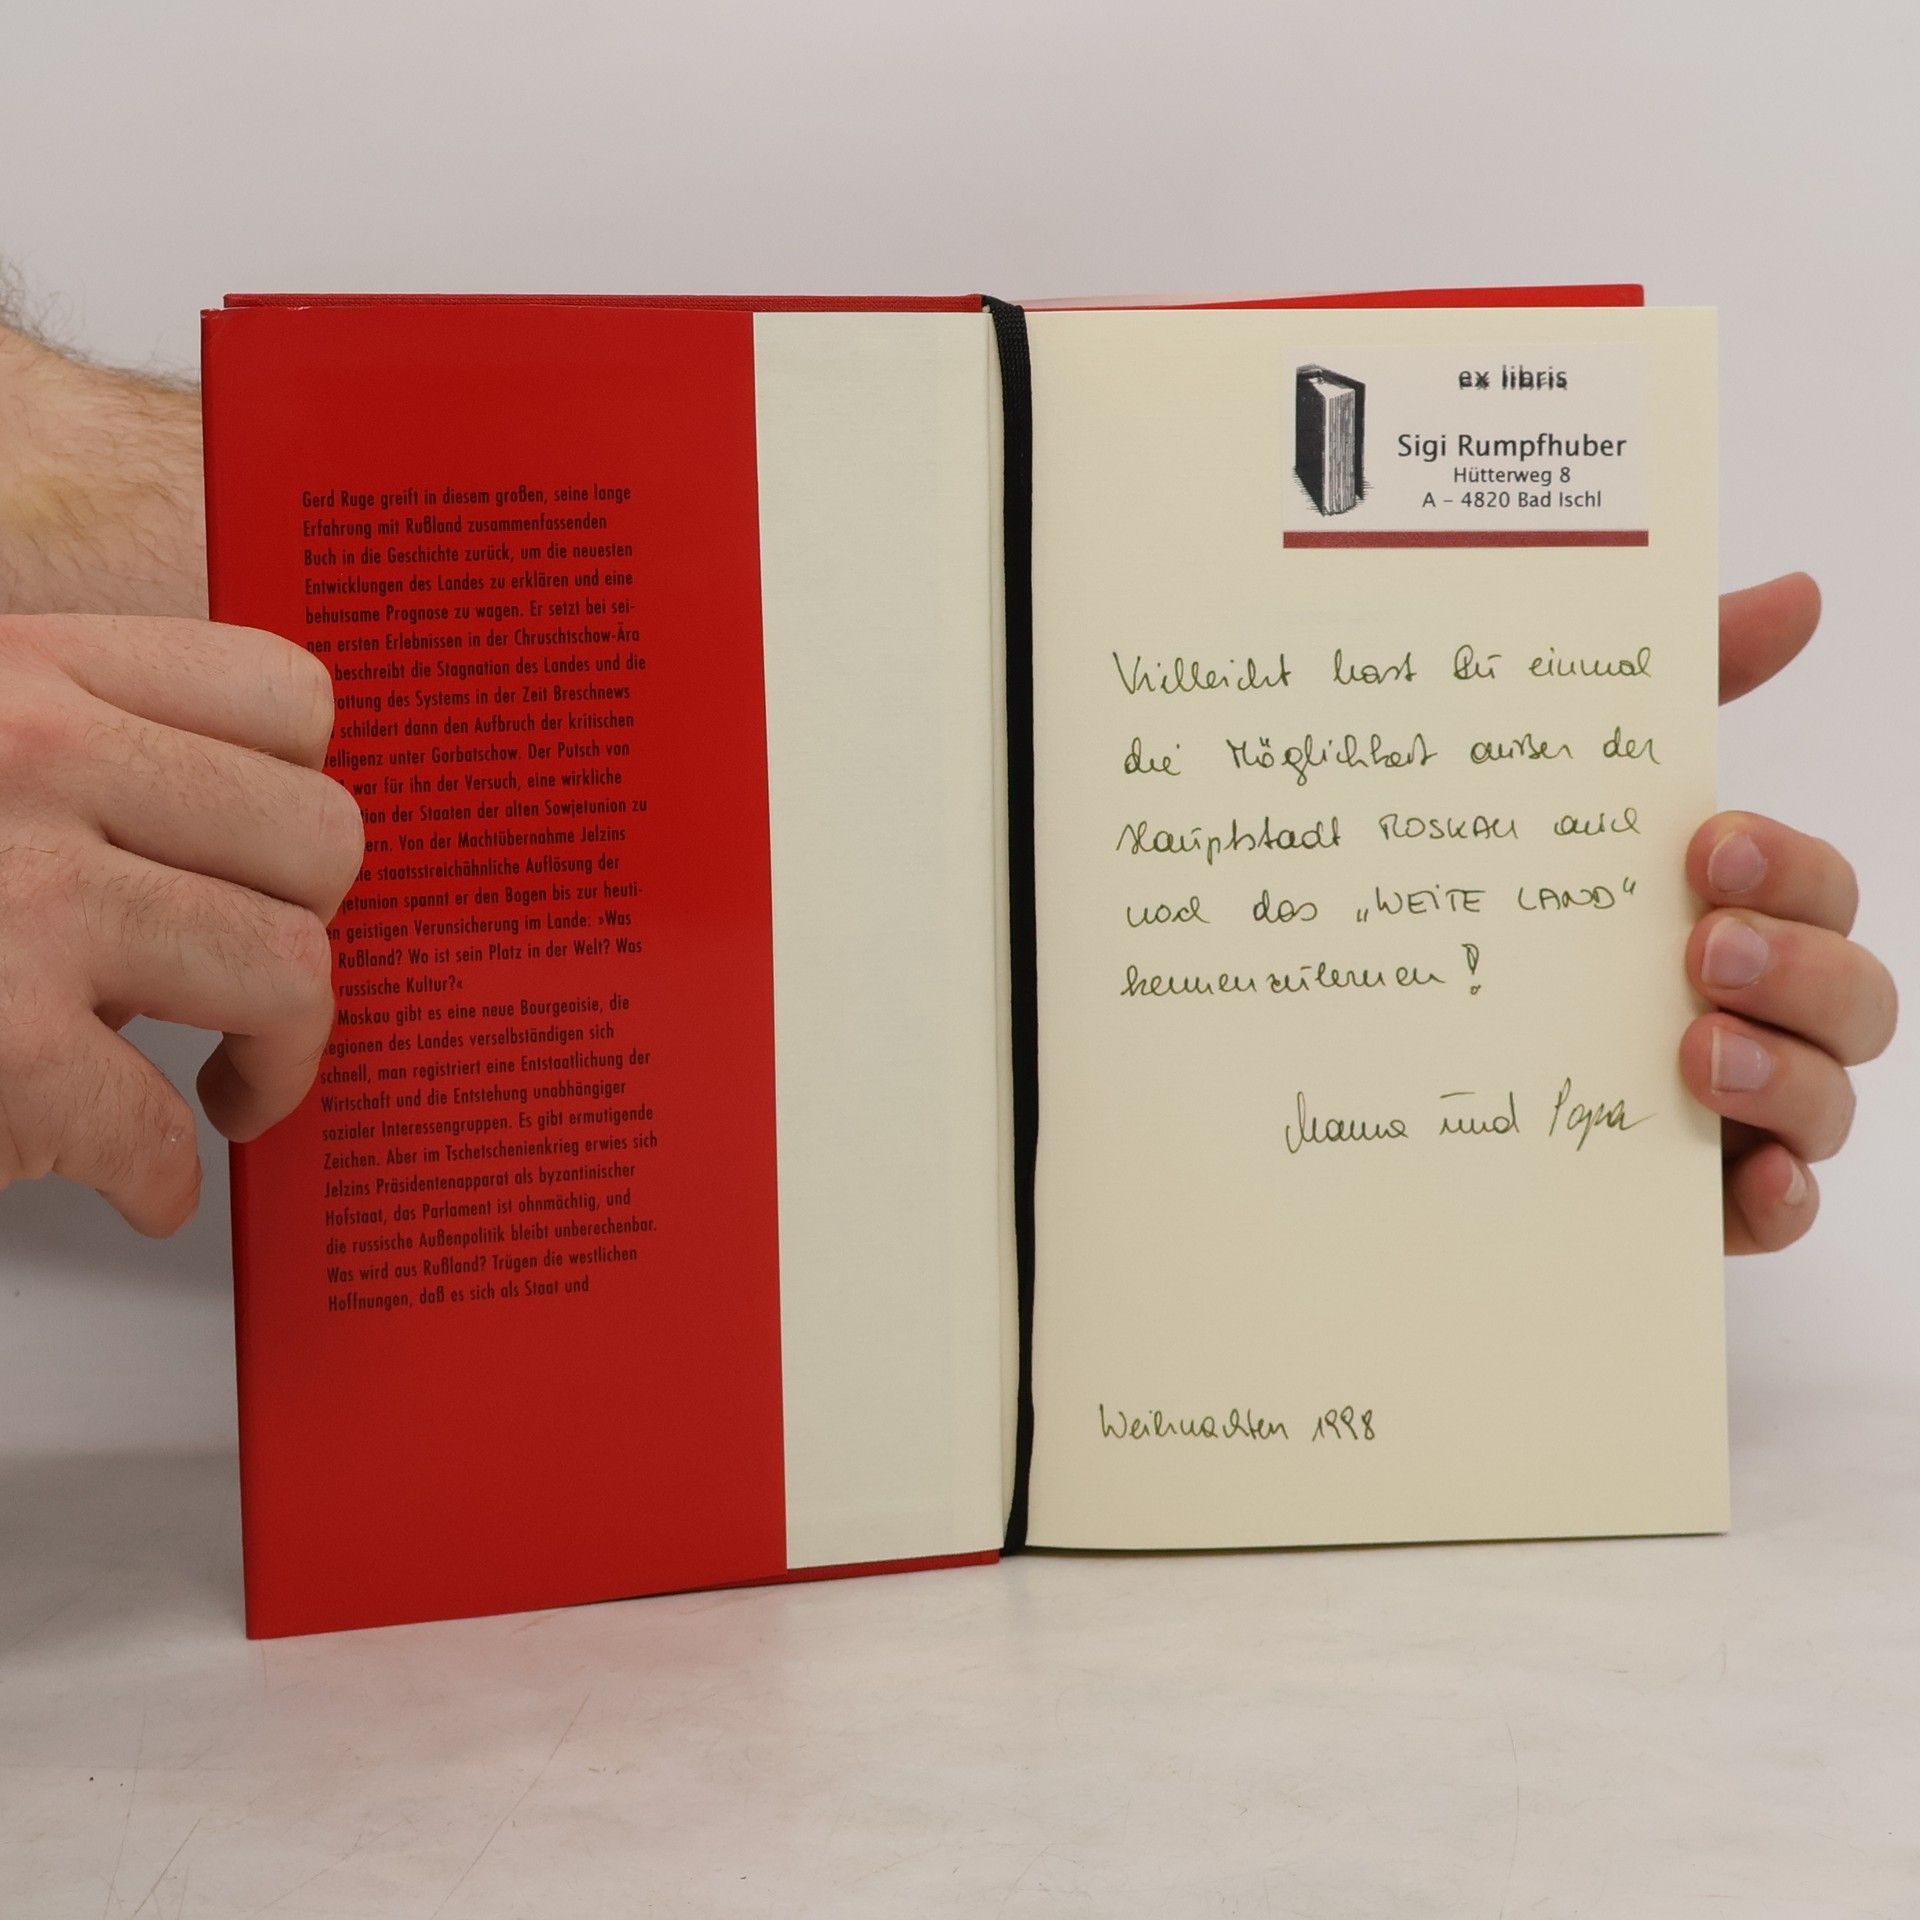 Gerd Ruge greift in diesem großen, seine lange
Erfahrung mit Rußland zusammenfassenden
Buch in die Geschichte zurück, um die neuesten
Entwicklungen des Landes zu erklären und eine
behutsame Prognose zu wagen. Er setzt bei sei-
nen ersten Erlebnissen in der Chruschtschow-Ära
beschreibt die Stagnation des Landes und die
des Systems in der Zeit Breschnews
schildert dann den Aufbruch der kritischen
unter Gorbatschow. Der Putsch von
war für ihn der Versuch, eine wirkliche
der Staaten der alten Sowjetunion zu
Von der Machtübernahme Jelzins
staatsstreichähnliche Auflösung der
spannt er den Bogen bis zur heuti-
geistigen Verunsicherung im Lande: »Was
Rußland? Wo ist sein Platz in der Welt? Was
russische Kultur?«
Moskau gibt es eine neue Bourgeoisie, die
Regionen des Landes verselbständigen sich
schnell, man registriert eine Entstaatlichung der
Wirtschaft und die Entstehung unabhängiger
sozialer Interessengruppen. Es gibt ermutigende
Zeichen. Aber im Tschetschenienkrieg erwies sich
Jelzins Präsidentenapparat als byzantinischer
Hofstaat, das Parlament ist ohnmächtig, und
die russische Außenpolitik bleibt unberechenbar.
Was wird aus Rußland? Trügen die westlichen
Hoffnungen, daß es sich als Staat und
ex libris
Sigi Rumpfhuber
Hütterweg 8
A – 4820 Bad Ischl
Vielleicht hast Du einmal
die Möglichkeit außer der
Hauptstadt MOSKAU auch
noch das „WEITE LAND“
kennenzulernen!
Mama und Papa
Weihnachten 1998